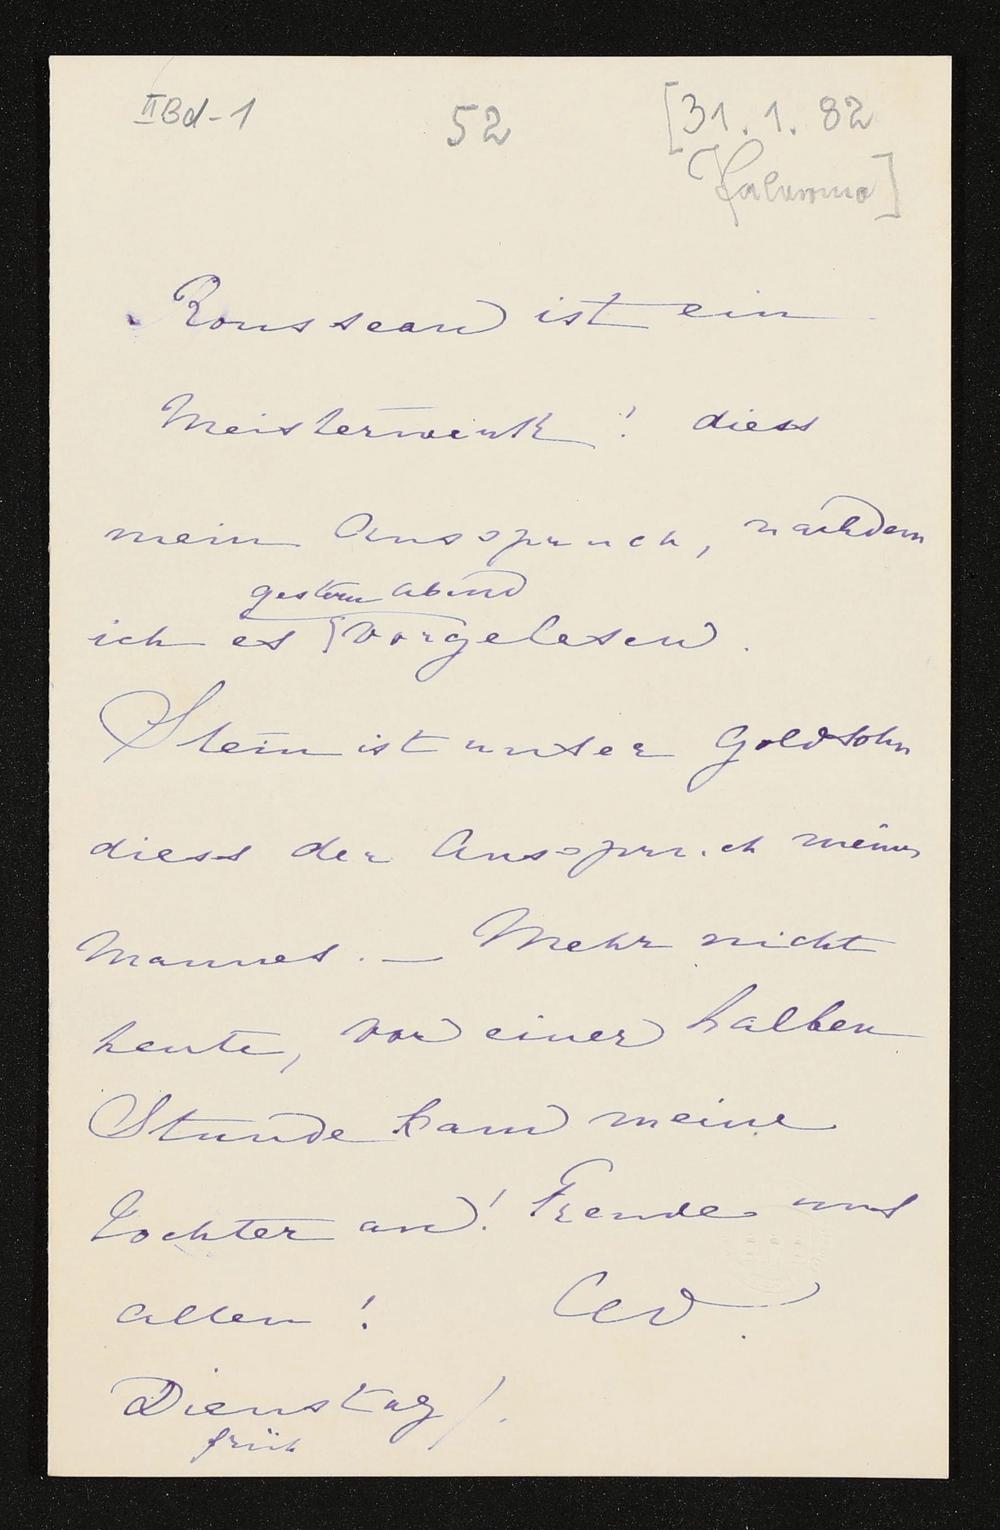 II Bd-1 52 [31.1.82
Palermo]
Rousseau ist ein
Meisterwerk! diess
mein Ausspruch, nachdem
gestern abend
ich es vorgelesen.
Stein ist unser Goldsohn
diess der Ausspruch meines
Mannes. — Mehr nicht
heute, vor einer halben
Stunde kam meine
Tochter an! Freude uns
allen! CW.
Dienstag/.
früh